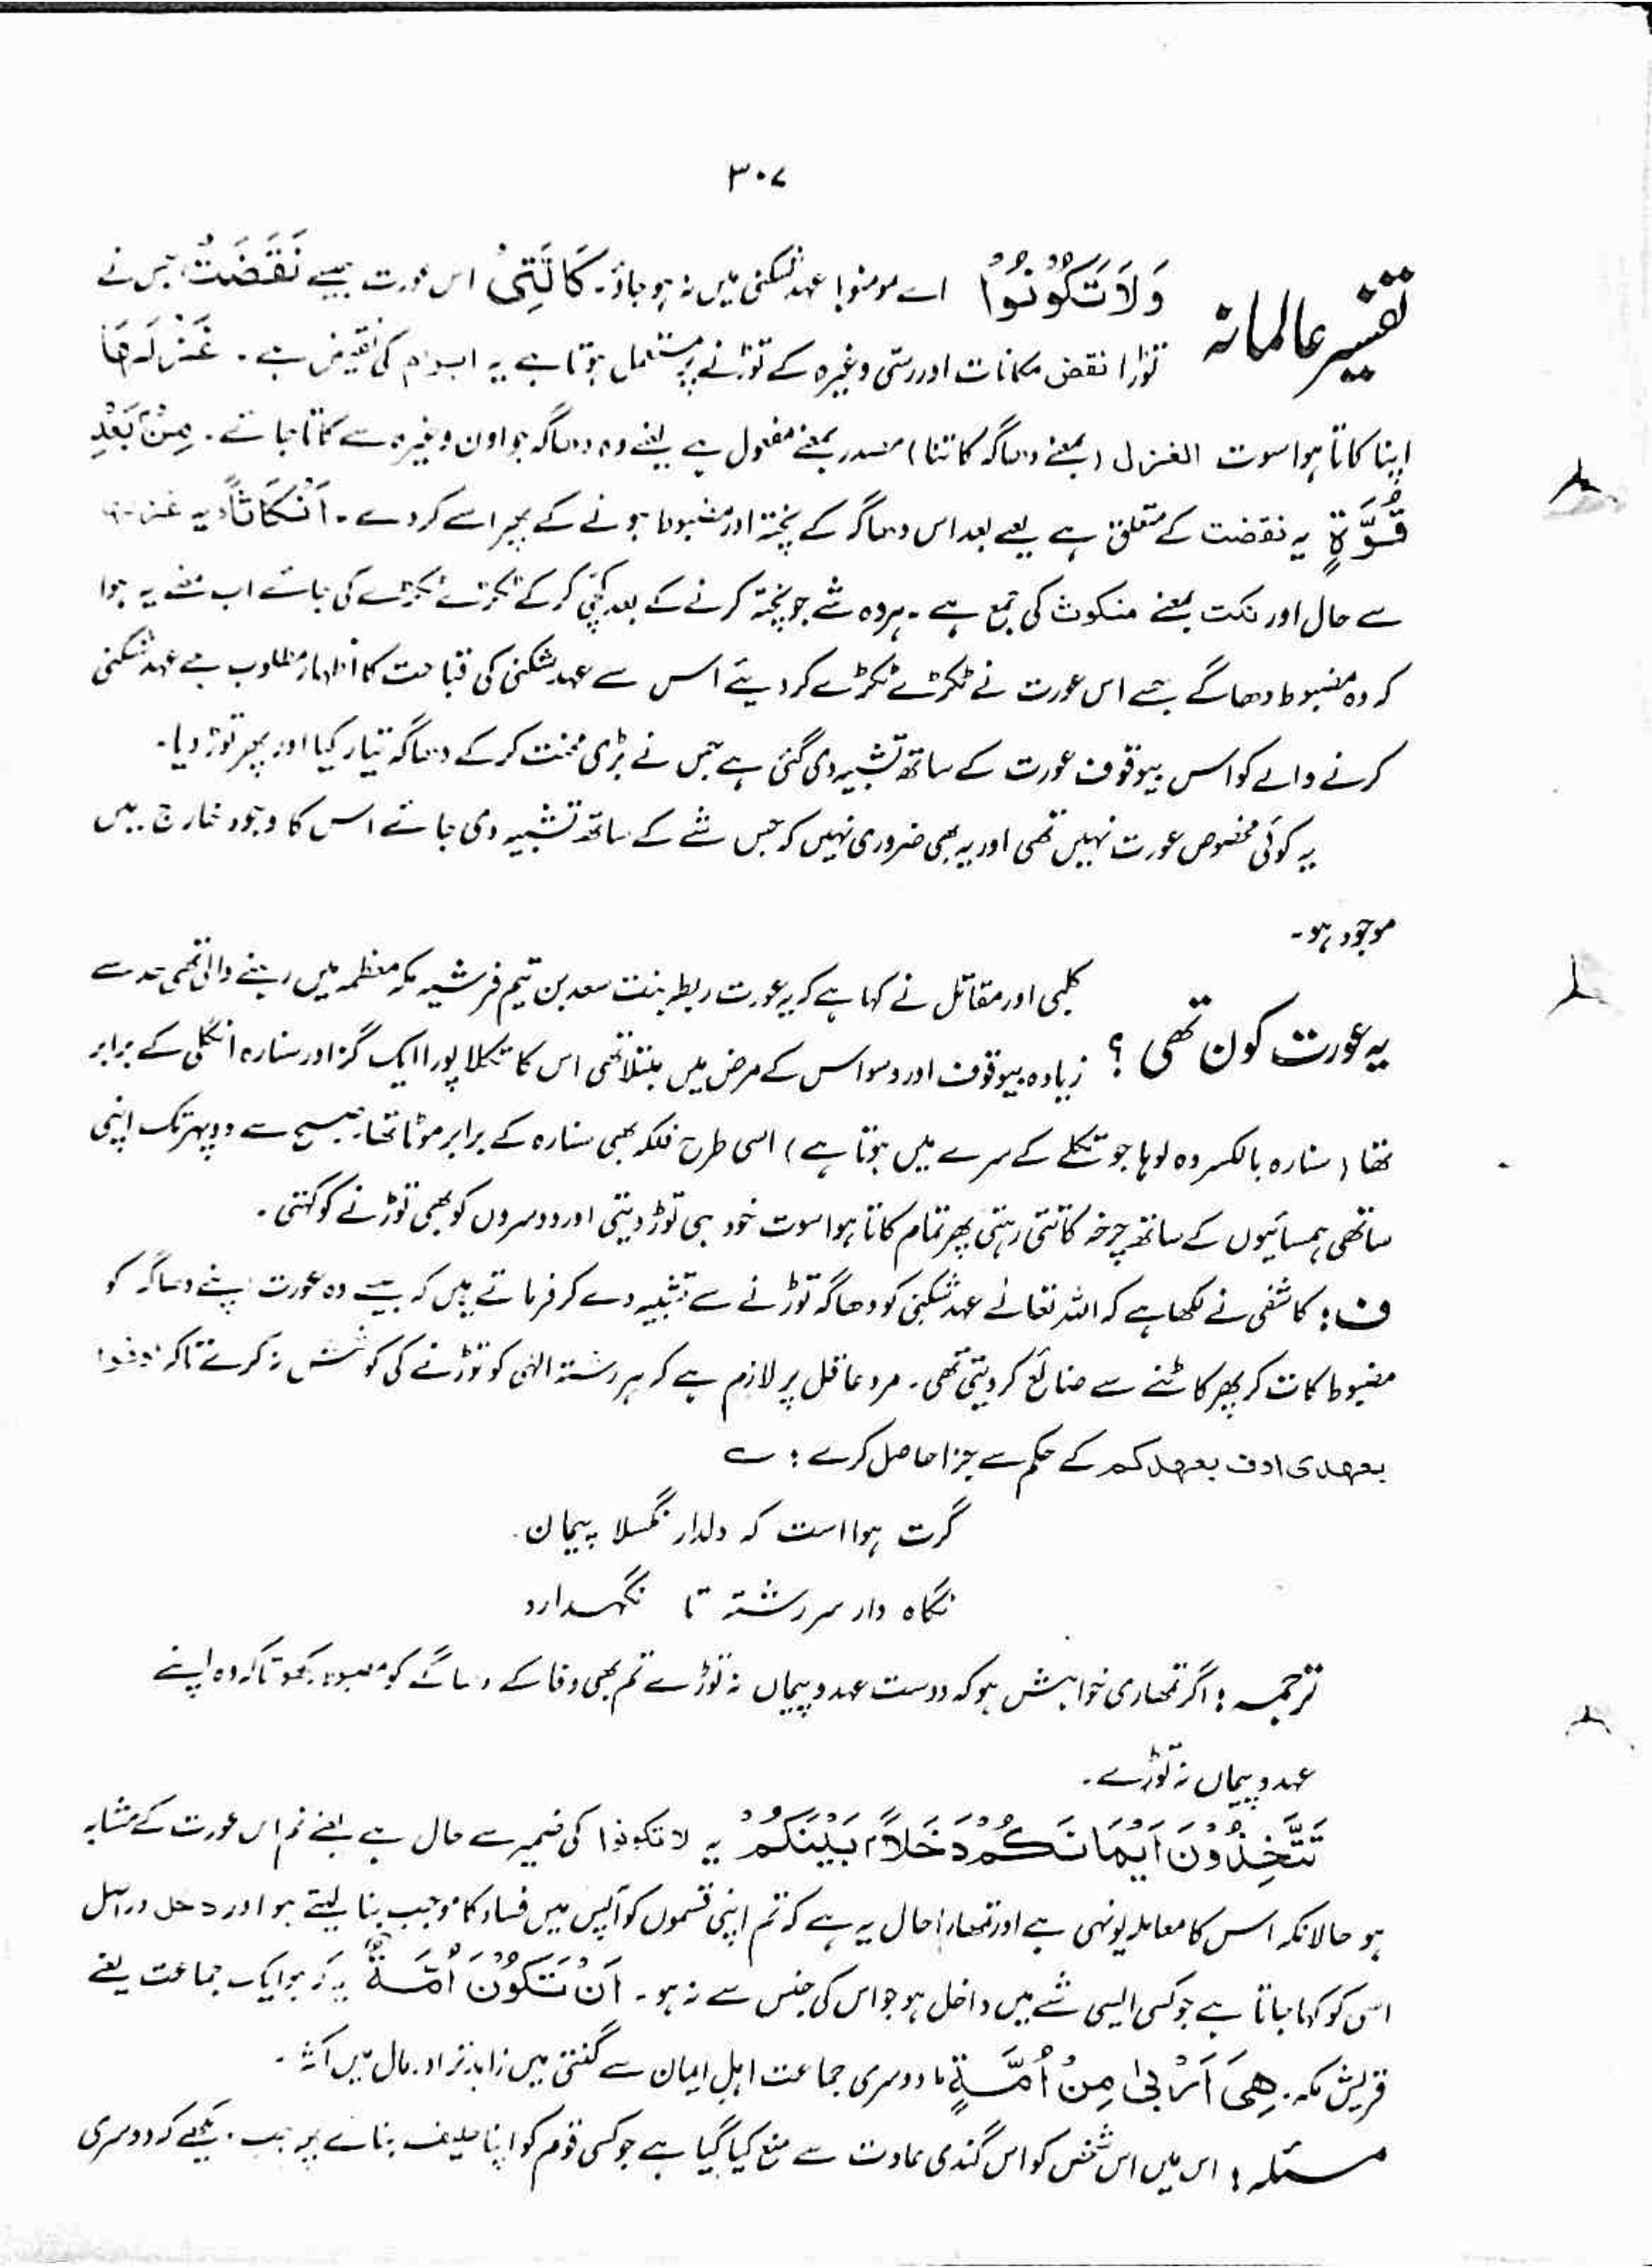 ۳۰۷
تفسیر عالمانہ
وَلَا تَكُوْنُوْا اے مومنو! عہد شکنی میں نہ ہو جاؤ۔ كَالَّتِىْ اس عورت جیسے نَقَضَتْ جس نے
توڑا نقض مکانات اور رسّی وغیرہ کے توڑنے پر مستعمل ہوتا ہے یہ ابرام کی نقیض ہے۔ غَزْلَهَا
اپنا کاتا ہوا سوت الغزل (بمعنے دھاگہ کاتنا) مصدر بمعنے مفعول ہے یعنے وہ دھاگہ جو اون وغیرہ سے کاتا جائے۔ مِنْۢ بَعْدِ
قُوَّةٍ یہ نقضت کے متعلق ہے یعنے بعد اس دھاگہ کے پختہ اور مضبوط ہونے کے پھر اسے کر دے۔ اَنْكَاثًا یہ غزلہا
سے حال اور نکث بمعنے منکوث کی جمع ہے۔ ہر وہ شے جو پختہ کرنے کے بعد کچّی کر کے ٹکڑے ٹکڑے کی جائے اب معنے یہ ہوا
کہ وہ مضبوط دھاگے جسے اس عورت نے ٹکڑے ٹکڑے کر دیئے اس سے عہد شکنی کی قباحت کا اظہار مطلوب ہے عہد شکنی
کرنے والے کو اس بیوقوف عورت کے ساتھ تشبیہ دی گئی ہے جس نے بڑی محنت کر کے دھاگہ تیار کیا اور پھر توڑ دیا۔
یہ کوئی مخصوص عورت نہیں تھی اور یہ بھی ضروری نہیں کہ جس شے کے ساتھ تشبیہ دی جائے اس کا وجود خارج میں
موجود ہو۔
یہ عورت کون تھی ؟
کلبی اور مقاتل نے کہا ہے کہ یہ عورت ریطہ بنت سعد بن تیم قرشیہ مکہ معظمہ میں رہنے والی تھی حد سے
زیادہ بیوقوف اور وسواس کے مرض میں مبتلا تھی اس کا تکلا پورا ایک گز اور سنارہ انگلی کے برابر
تھا (سنارہ بالکسر وہ لوہا جو تکلے کے سرے میں ہوتا ہے) اسی طرح فلکہ بھی سنارہ کے برابر موٹا تھا۔ صبح سے دوپہر تک اپنی
ساتھی ہمسائیوں کے ساتھ چرخہ کاتتی رہتی پھر تمام کاتا ہوا سوت خود ہی توڑ دیتی اور دوسروں کو بھی توڑنے کو کہتی۔
ف: کاشفی نے لکھا ہے کہ اللہ تعالے عہد شکنی کو دھاگہ توڑنے سے تشبیہ دے کر فرماتے ہیں کہ جیسے وہ عورت اپنے دھاگہ کو
مضبوط کات کر پھر کاٹنے سے ضائع کر دیتی تھی۔ مرد عاقل پر لازم ہے کہ ہر رشتۂ الٰہی کو توڑنے کی کوشش نہ کرے تاکہ اوفوا
بعهدی اوف بعهدکم کے حکم سے جزا حاصل کرے : ؎
گرت ہوا است کہ دلدار نگسلا پیمان
نگاہ دار سر رشتہ تا نگہدارد
ترجمہ : اگر تمھاری خواہش ہو کہ دوست عہد و پیماں نہ توڑے تم بھی وفا کے دھاگے کو مضبوط رکھو تاکہ وہ اپنے
عہد و پیماں نہ توڑے۔
تَتَّخِذُوْنَ اَيْمَانَكُمْ دَخَلًاۢ بَيْنَكُمْ یہ لا تکونوا کی ضمیر سے حال ہے یعنے تم اس عورت کے مشابہ
ہو حالانکہ اس کا معاملہ یونہی ہے اور تمھارا حال یہ ہے کہ تم اپنی قسموں کو آپس میں فساد کا موجب بنا لیتے ہو اور دخل دراصل
اسی کو کہا جاتا ہے جو کسی ایسی شے میں داخل ہو جو اس کی جنس سے نہ ہو۔ اَنْ تَكُوْنَ اُمَّةٌ یہ کہ ہو ایک جماعت یعنے
قریش مکہ۔ هِىَ اَرْبٰى مِنْ اُمَّةٍ دوسری جماعت اہل ایمان سے گنتی میں زاید تر اور مال میں اکثر۔
مسئلہ : اس میں اس شخص کو اس گندی عادت سے منع کیا گیا ہے جو کسی قوم کو اپنا حلیف بنائے پھر جب دیکھے کہ دوسری